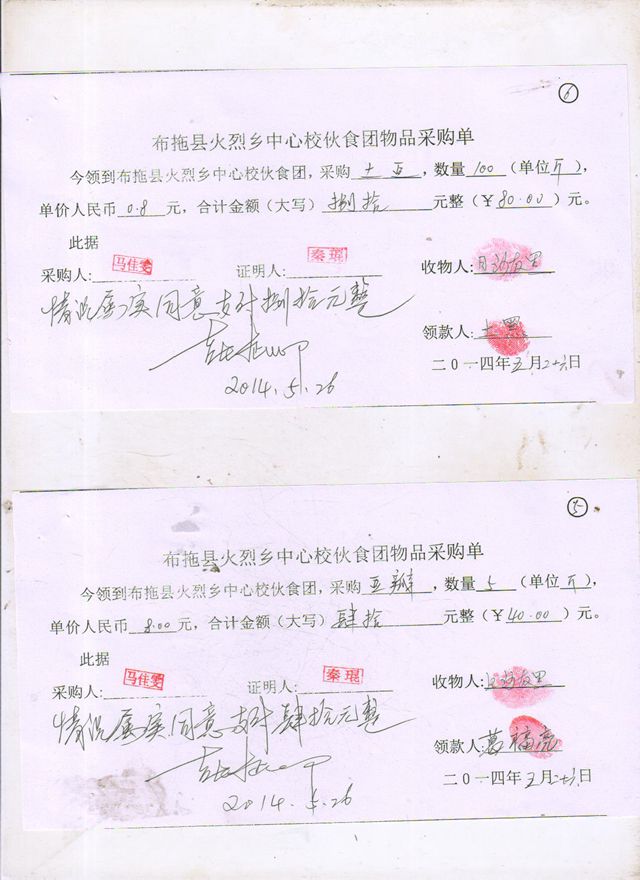 6
布拖县火烈乡中心校伙食团物品采购单
今领到布拖县火烈乡中心校伙食团，采购 土豆 ，数量 100 （单位 斤 ），
单价人民币 0.8 元，合计金额（大写） 捌拾 元整（￥ 80.00 ）元。
此据
采购人: 马佳雯 证明人: 秦琨 收物人:
情况属实同意支付捌拾元整
领款人: 土黑
2014.5.26
二〇一四年五月二十六日
5
布拖县火烈乡中心校伙食团物品采购单
今领到布拖县火烈乡中心校伙食团，采购 豆瓣 ，数量 5 （单位 斤 ），
单价人民币 8.00 元，合计金额（大写） 肆拾 元整（￥ 40.00 ）元。
此据
采购人: 马佳雯 证明人: 秦琨 收物人:
情况属实同意支付肆拾元整
领款人: 葛福亮
2014.5.26
二〇一四年五月二十六日